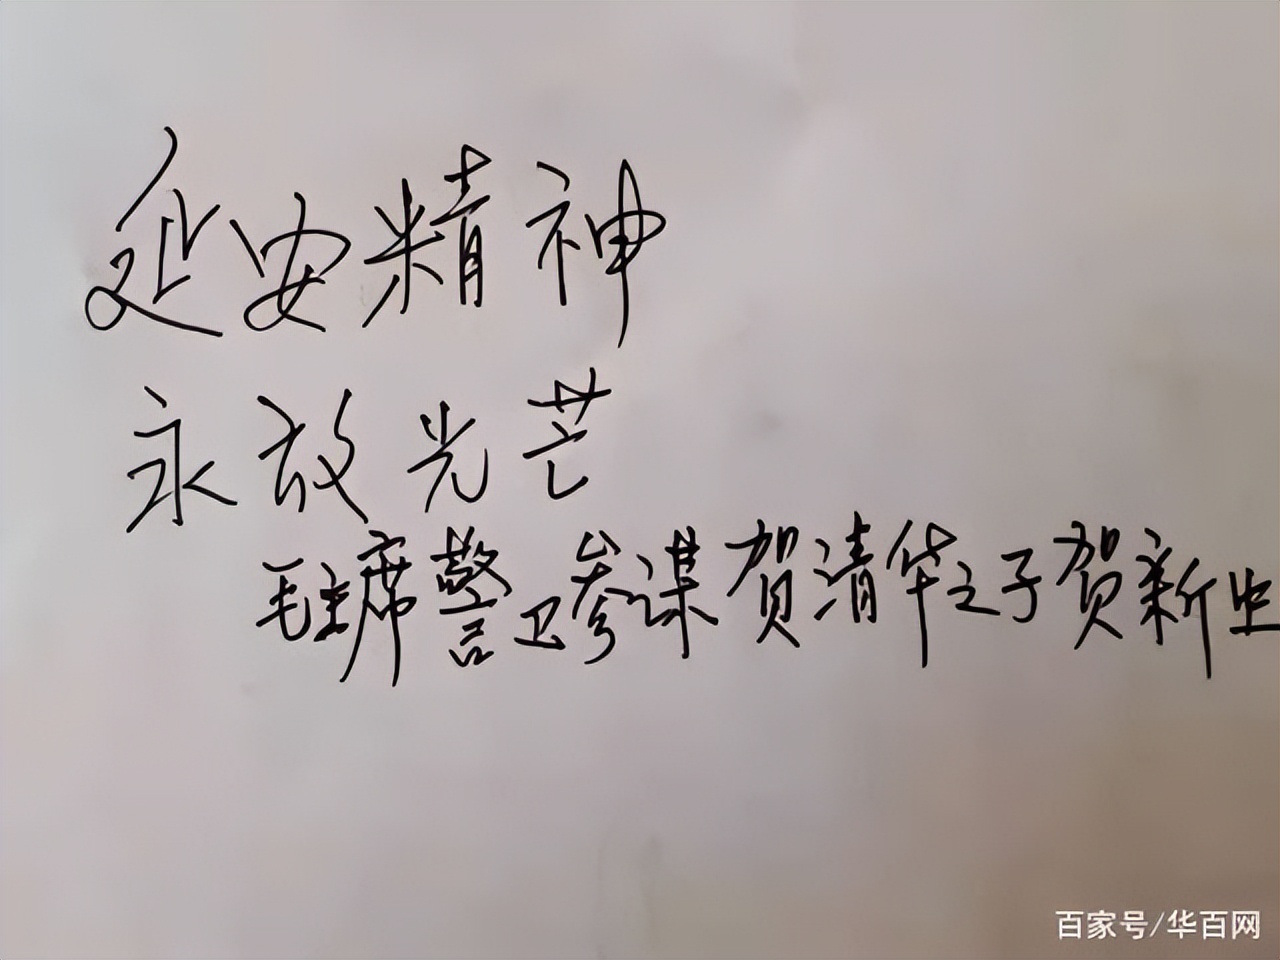 延安精神
永放光芒
毛主席警卫参谋贺清华之子贺新生
百家号/华百网